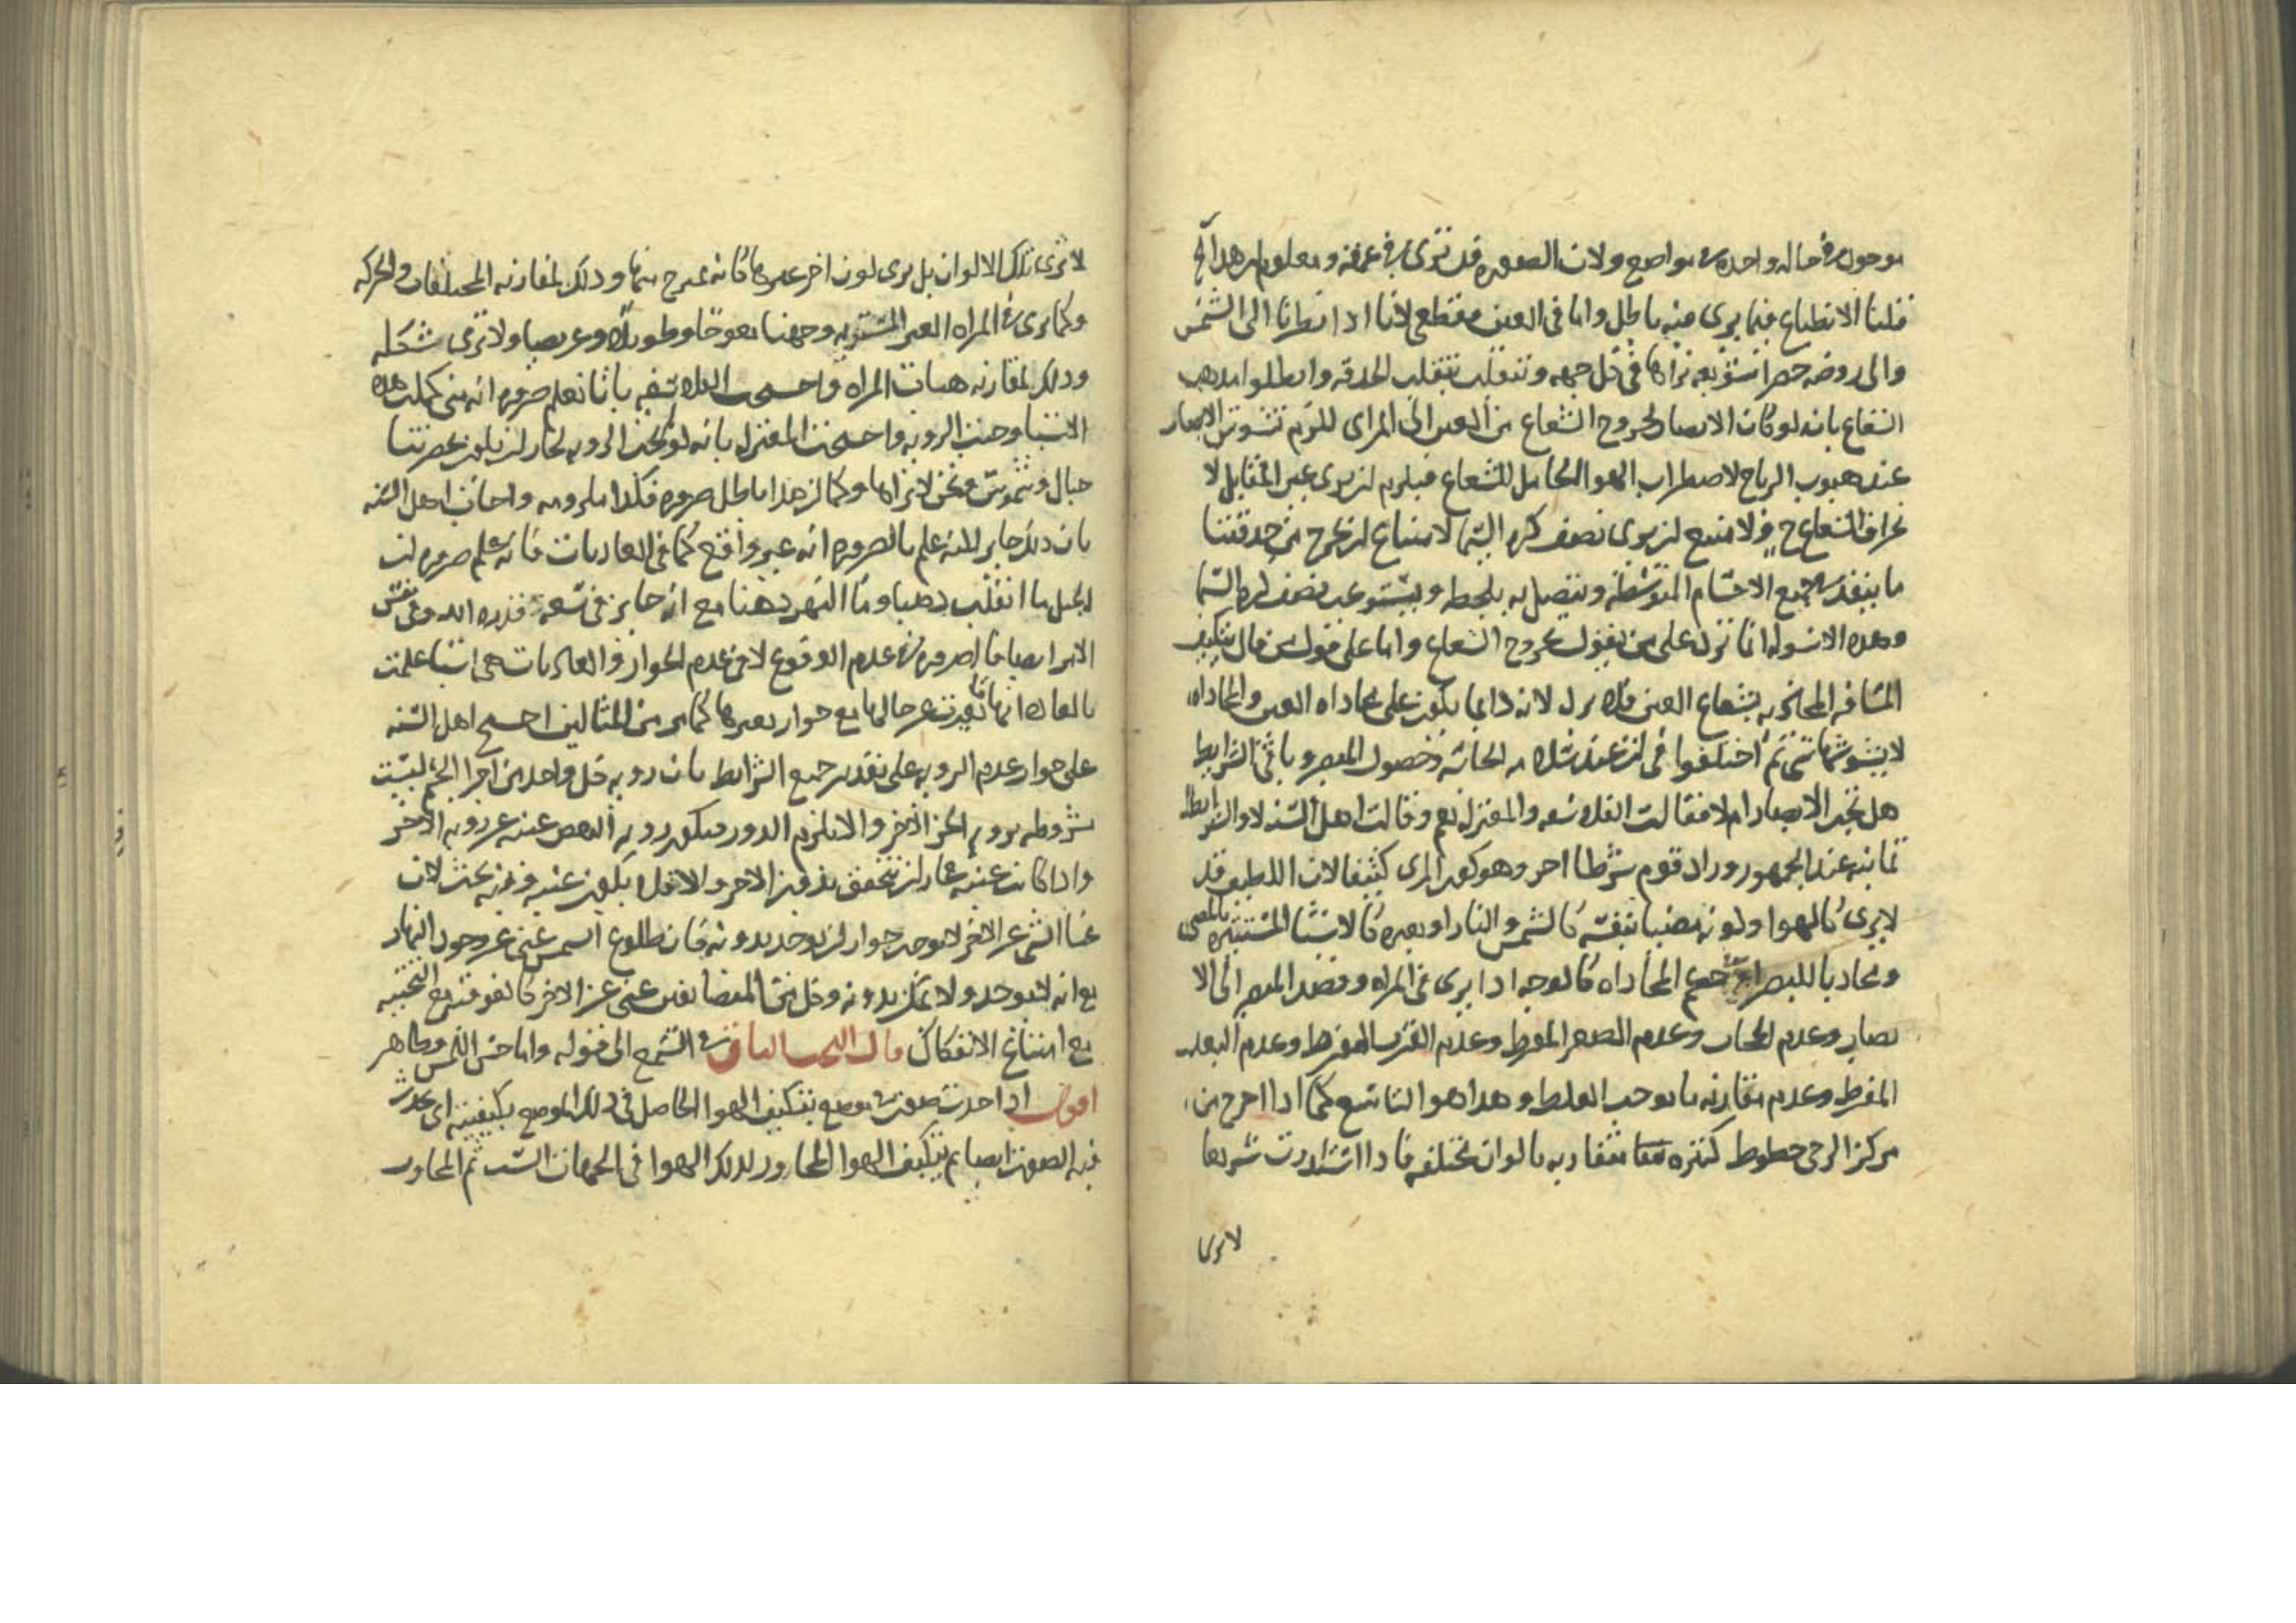 موجود في حالة واحدة في مواضع ولان الصورة قد ترى في عمقه ومعلوم ان هذا
قلنا الانطباع فيما يرى فيه باطل واما في العين فقطعي لانا اذا نظرنا الى الشمس
والى روضة خضرا نراها في كل جهة وتنقلب بتقلب الحدقة وابطلوا مذهب
الشعاع بانه لو كان الابصار لخروج الشعاع من العين الى المراى للزم تشوش الابصار
عند هبوب الرياح لاضطراب الهوا الحامل للشعاع فيلزم ان يرى غير المقابل لا
الشعاع ح ولامتنع ان يرى نصف كرة السما لامتناع ان يخرج من حدقتنا
ما ينفذ في جميع الاجسام المتوسطة ويتصل به بلحظة ويستوعب نصف كرة السما
وهذه الاسولة انما ترد على من يقول بخروج الشعاع واما على قول من قال بتكيف
المسافة بشعاع العين فلا يرد لانه دايما يكون على محاذاه العين والمحاذاه
لا يشوشها شي ثم اختلفوا في ان عند سلامة الحاسة وحصول المبصر وباقي الشرايط
هل يجب الابصار ام لا فقالت الفلاسفة والمعتزلة نعم وقالت اهل السنة لا والشرايط
ثمانية عند الجمهور وزاد قوم شرطا اخر وهو كون المرى كثيفا لان اللطيف قد
لا يرى كالهوا ولونه مضيا بنفسه كالشمس والنار او بغيره كالاشيا المستنيرة بالمضي
ومحاذيا للبصر او في حكم المحاذاه كالوجه اذا يرى في المراه وقصد المبصر الى الا
بصار وعدم الحجاب وعدم الصغر المفرط وعدم القرب المفرط وعدم البعد
المفرط وعدم مقارنة ما يوجب الغلط وهذا هو التاسع كما اذا اخرج من
مركز الرحى خطوط كثيرة متقاربة بالوان مختلفة فاذا استدارت سريعا
لا يرى
لا ترى تلك الالوان بل يرى لون اخر غيرها كانه ممتزج منها وذلك لمقارنة المختلفات والحركة
وكما يرى في المراه الغير المستوية وجهنا معوجا وطويلا وعريضا ولا يرى شكله
وذلك لمقارنة هيات المراه واحتجت الفلاسفة بانا نعلم ضرورة انه متى كملت هذه
الاشيا وجبت الروية واحتجت المعتزلة بانه لو لم تجب الروية لجاز ان يكون بحضرتنا
جبال وشموس ونحن لا نراها وكما ان هذا باطل ضرورة فكذا ملزومه واجاب اهل السنة
بان ذلك جايز لكنه علم بالضرورة انه غير واقع كما في العاديات فانه علم ضرورة ان
الجبل ما انقلب ذهبا وما النهر دهنا مع انه جايز في سعة قدرة الله وفي نفس
الامر ايضا فالضرورة في عدم الوقوع لا في عدم الجواز والعاديات هي اشيا علمت
بالعادة انها ما تغيرت عن حالها مع جواز تغيرها كما مر من المثالين احتج اهل السنة
على جواز عدم الروية على تقدير جميع الشرايط بان روية كل واحد من اجزا الجسم ليست
مشروطة بروية الجز الاخر والا يلزم الدور فيكون روية البعض غنية عن روية الاخر
واذا كانت غنية جاز ان تتحقق بدون الاخر والا فلا يكون غنية وفيه بحث لان
غنا الشي عن الاخر لا يوجب جواز ان يوجد بدونه فان طلوع الشمس غني عن وجود النهار
مع انه لا يوجد ولا يمكن بدونه وكل من المتضايفين غني عن الاخر كالفوقية مع التحتية
مع امتناع الانفكاك قال البحث الثاني في السمع الى قوله واما حس اللمس فظاهر
اقول اذا حدث صوت في موضع يتكيف الهوا الحاصل في ذلك الموضع بكيفيته اى يحدث
فيه الصوت ايضا ثم يتكيف الهوا المجاور لذلك الهوا في الجهات الست ثم المجاور